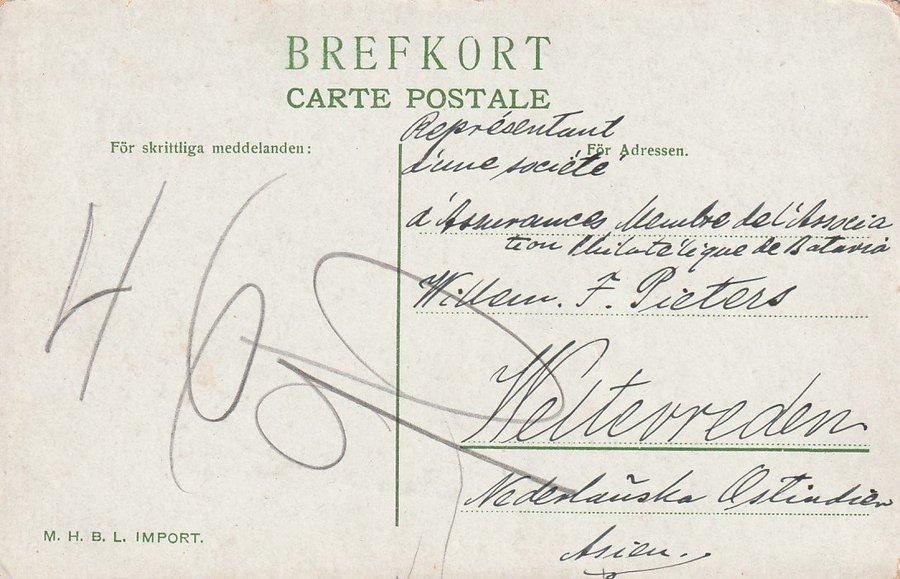 BREFKORT
CARTE POSTALE
För skriftliga meddelanden:
För Adressen.
Représentant
d'une société
d'Assurances Membre de l'Associa
tion Philatélique de Batavia
Willem. F. Pieters
Weltevreden
Nederländska Ostindien
Asien.
46
M. H. B. L. IMPORT.